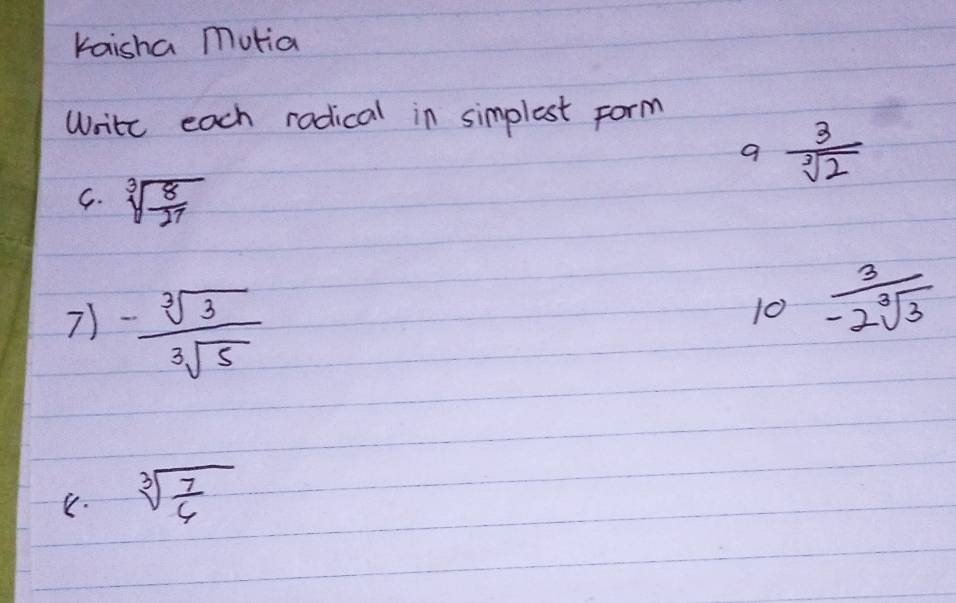 Kaisha Mutia
Write each radical in simplest Form
6. ∛(8/27)
7) - ∛3 / ∛5
8. ∛(7/6)
9 3 / ∛2
10 3 / -2∛3